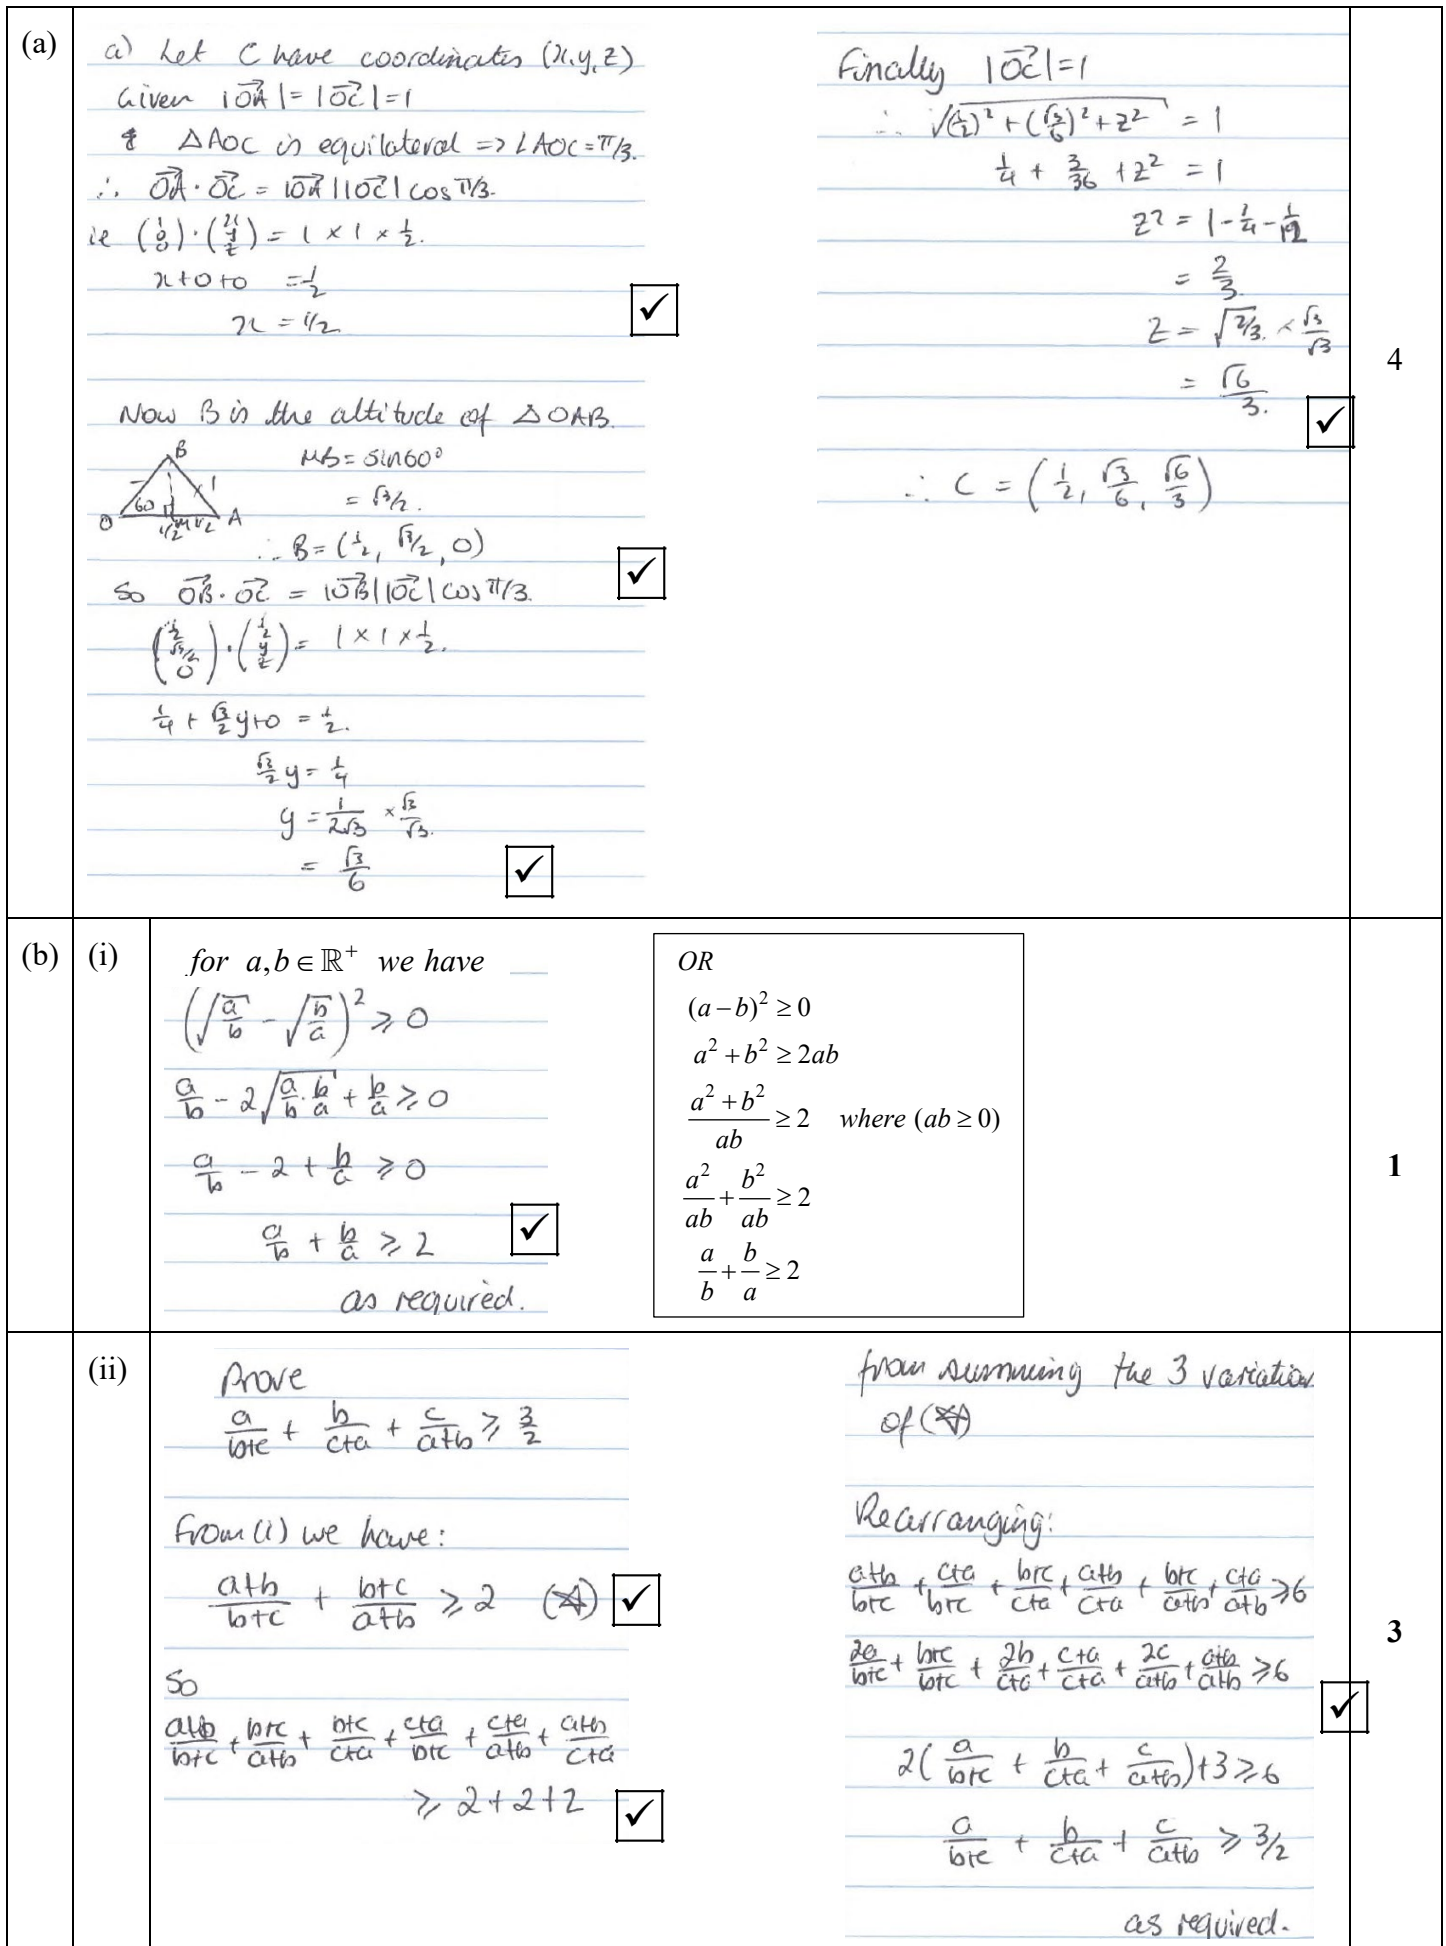 (a)
a) Let C have coordinates (x,y,z)
Given |OA| = |OC| = 1
& △AOC is equilateral => ∠AOC = π/3.
∴ OA · OC = |OA||OC| cos π/3.
ie (1 0 0) · (x y z) = 1 × 1 × 1/2.
x+0+0 = 1/2
x = 1/2
✓
Now B is the altitude of △OAB.
B
60
1
O 1/2 M 1/2 A
MB = sin60°
= √3/2.
∴ B = (1/2, √3/2, 0)
✓
So OB · OC = |OB||OC| cos π/3.
(1/2 √3/2 0) · (1/2 y z) = 1 × 1 × 1/2.
1/4 + √3/2 y + 0 = 1/2.
√3/2 y = 1/4
y = 1/2√3 × √3/√3.
= √3/6
✓
Finally |OC| = 1
∴ √((1/2)² + (√3/6)² + z²) = 1
1/4 + 3/36 + z² = 1
z² = 1 - 1/4 - 1/12
= 2/3.
z = √2/3. × √3/√3
= √6/3.
✓
∴ C = (1/2, √3/6, √6/3)
4
(b) (i)
for a,b ∈ ℝ⁺ we have
(√a/b - √b/a)² ⩾ 0
a/b - 2√(a/b · b/a) + b/a ⩾ 0
a/b - 2 + b/a ⩾ 0
a/b + b/a ⩾ 2
✓
as required.
OR
(a − b)² ≥ 0
a² + b² ≥ 2ab
(a² + b²)/ab ≥ 2 where (ab ≥ 0)
a²/ab + b²/ab ≥ 2
a/b + b/a ≥ 2
1
(ii)
Prove
a/(b+c) + b/(c+a) + c/(a+b) ⩾ 3/2
From (i) we have:
(a+b)/(b+c) + (b+c)/(a+b) ⩾ 2 (☆)
✓
So
(a+b)/(b+c) + (b+c)/(a+b) + (b+c)/(c+a) + (c+a)/(b+c) + (c+a)/(a+b) + (a+b)/(c+a)
⩾ 2+2+2
✓
from summing the 3 variation
of (☆)
Rearranging:
(a+b)/(b+c) + (c+a)/(b+c) + (b+c)/(c+a) + (a+b)/(c+a) + (b+c)/(a+b) + (c+a)/(a+b) ⩾ 6
2a/(b+c) + (b+c)/(b+c) + 2b/(c+a) + (c+a)/(c+a) + 2c/(a+b) + (a+b)/(a+b) ⩾ 6
✓
2(a/(b+c) + b/(c+a) + c/(a+b)) + 3 ⩾ 6
a/(b+c) + b/(c+a) + c/(a+b) ⩾ 3/2
as required.
3